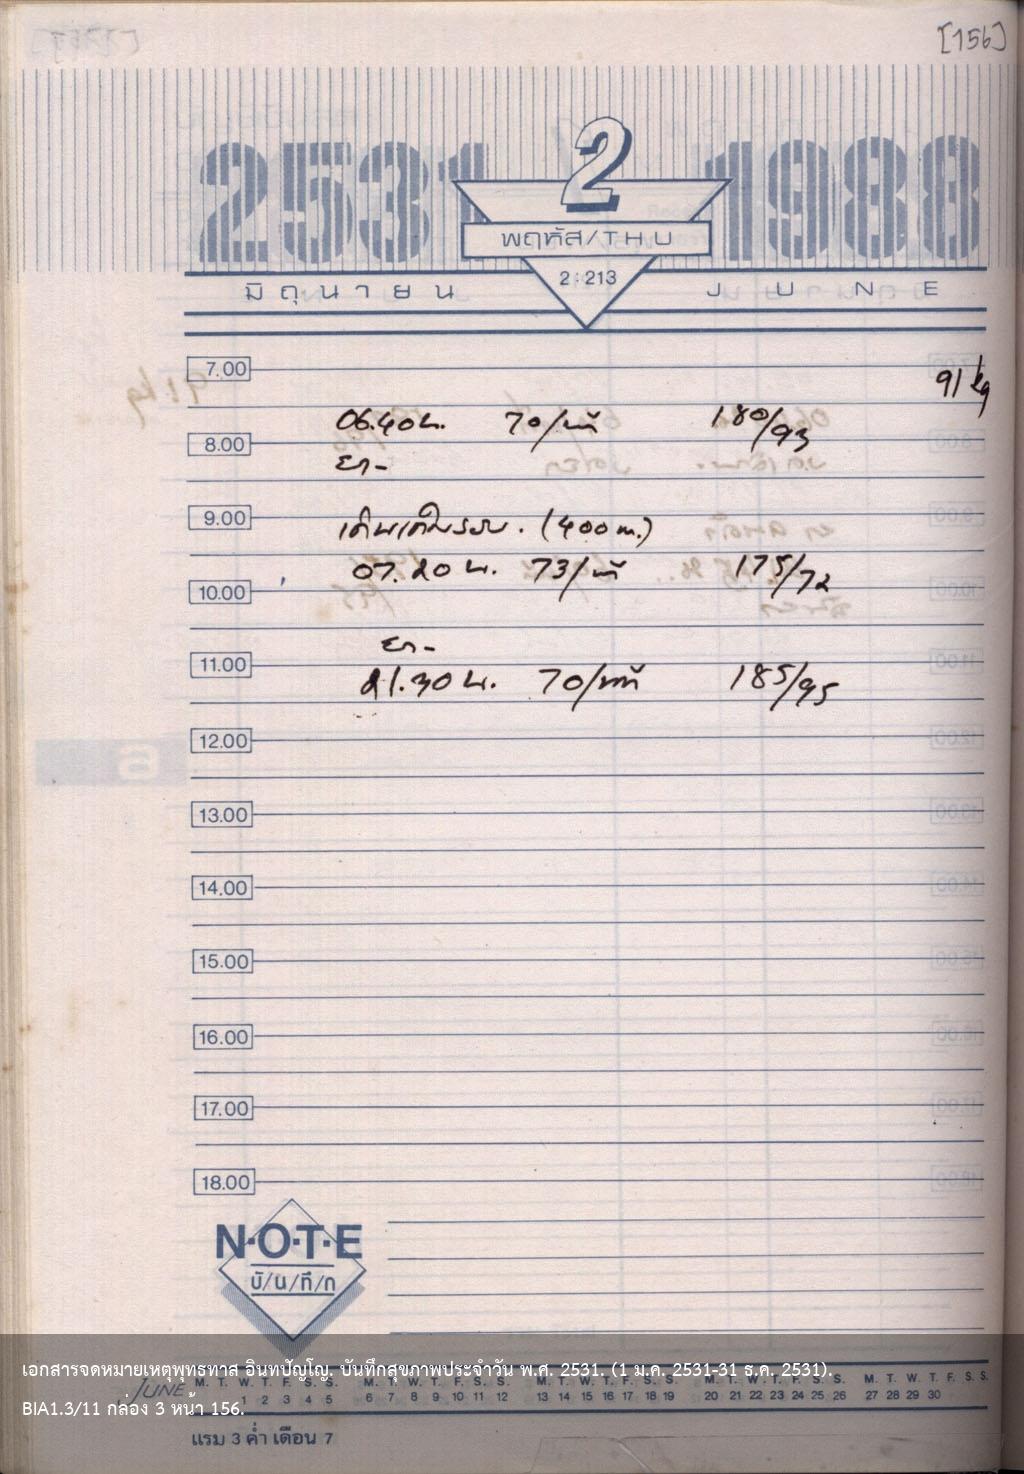 [156]
2531
2
1988
พฤหัส/THU
2:213
มิถุนายน
JUNE
7.00
91 kg
06.40 น. 70/นาที 180/93
8.00
ยา-
9.00
เดินเต็มรอบ. (400 m.)
07.20 น. 73/นาที 175/72
10.00
ยา-
11.00
21.30 น. 70/นาที 185/95
12.00
13.00
14.00
15.00
16.00
17.00
18.00
N·O·T·E
บั/น/ทึ/ก
เอกสารจดหมายเหตุพุทธทาส อินทปัญโญ. บันทึกสุขภาพประจำวัน พ.ศ. 2531. (1 ม.ค. 2531-31 ธ.ค. 2531).
JUNE M. T. W. T. F. S. S. M. T. W. T. F. S. S. M. T. W. T. F. S. S. M. T. W. T. F. S. S. M. T. W. T. F. S. S.
1 2 3 4 5 6 7 8 9 10 11 12 13 14 15 16 17 18 19 20 21 22 23 24 25 26 27 28 29 30
BIA1.3/11 กล่อง 3 หน้า 156.
แรม 3 ค่ำ เดือน 7